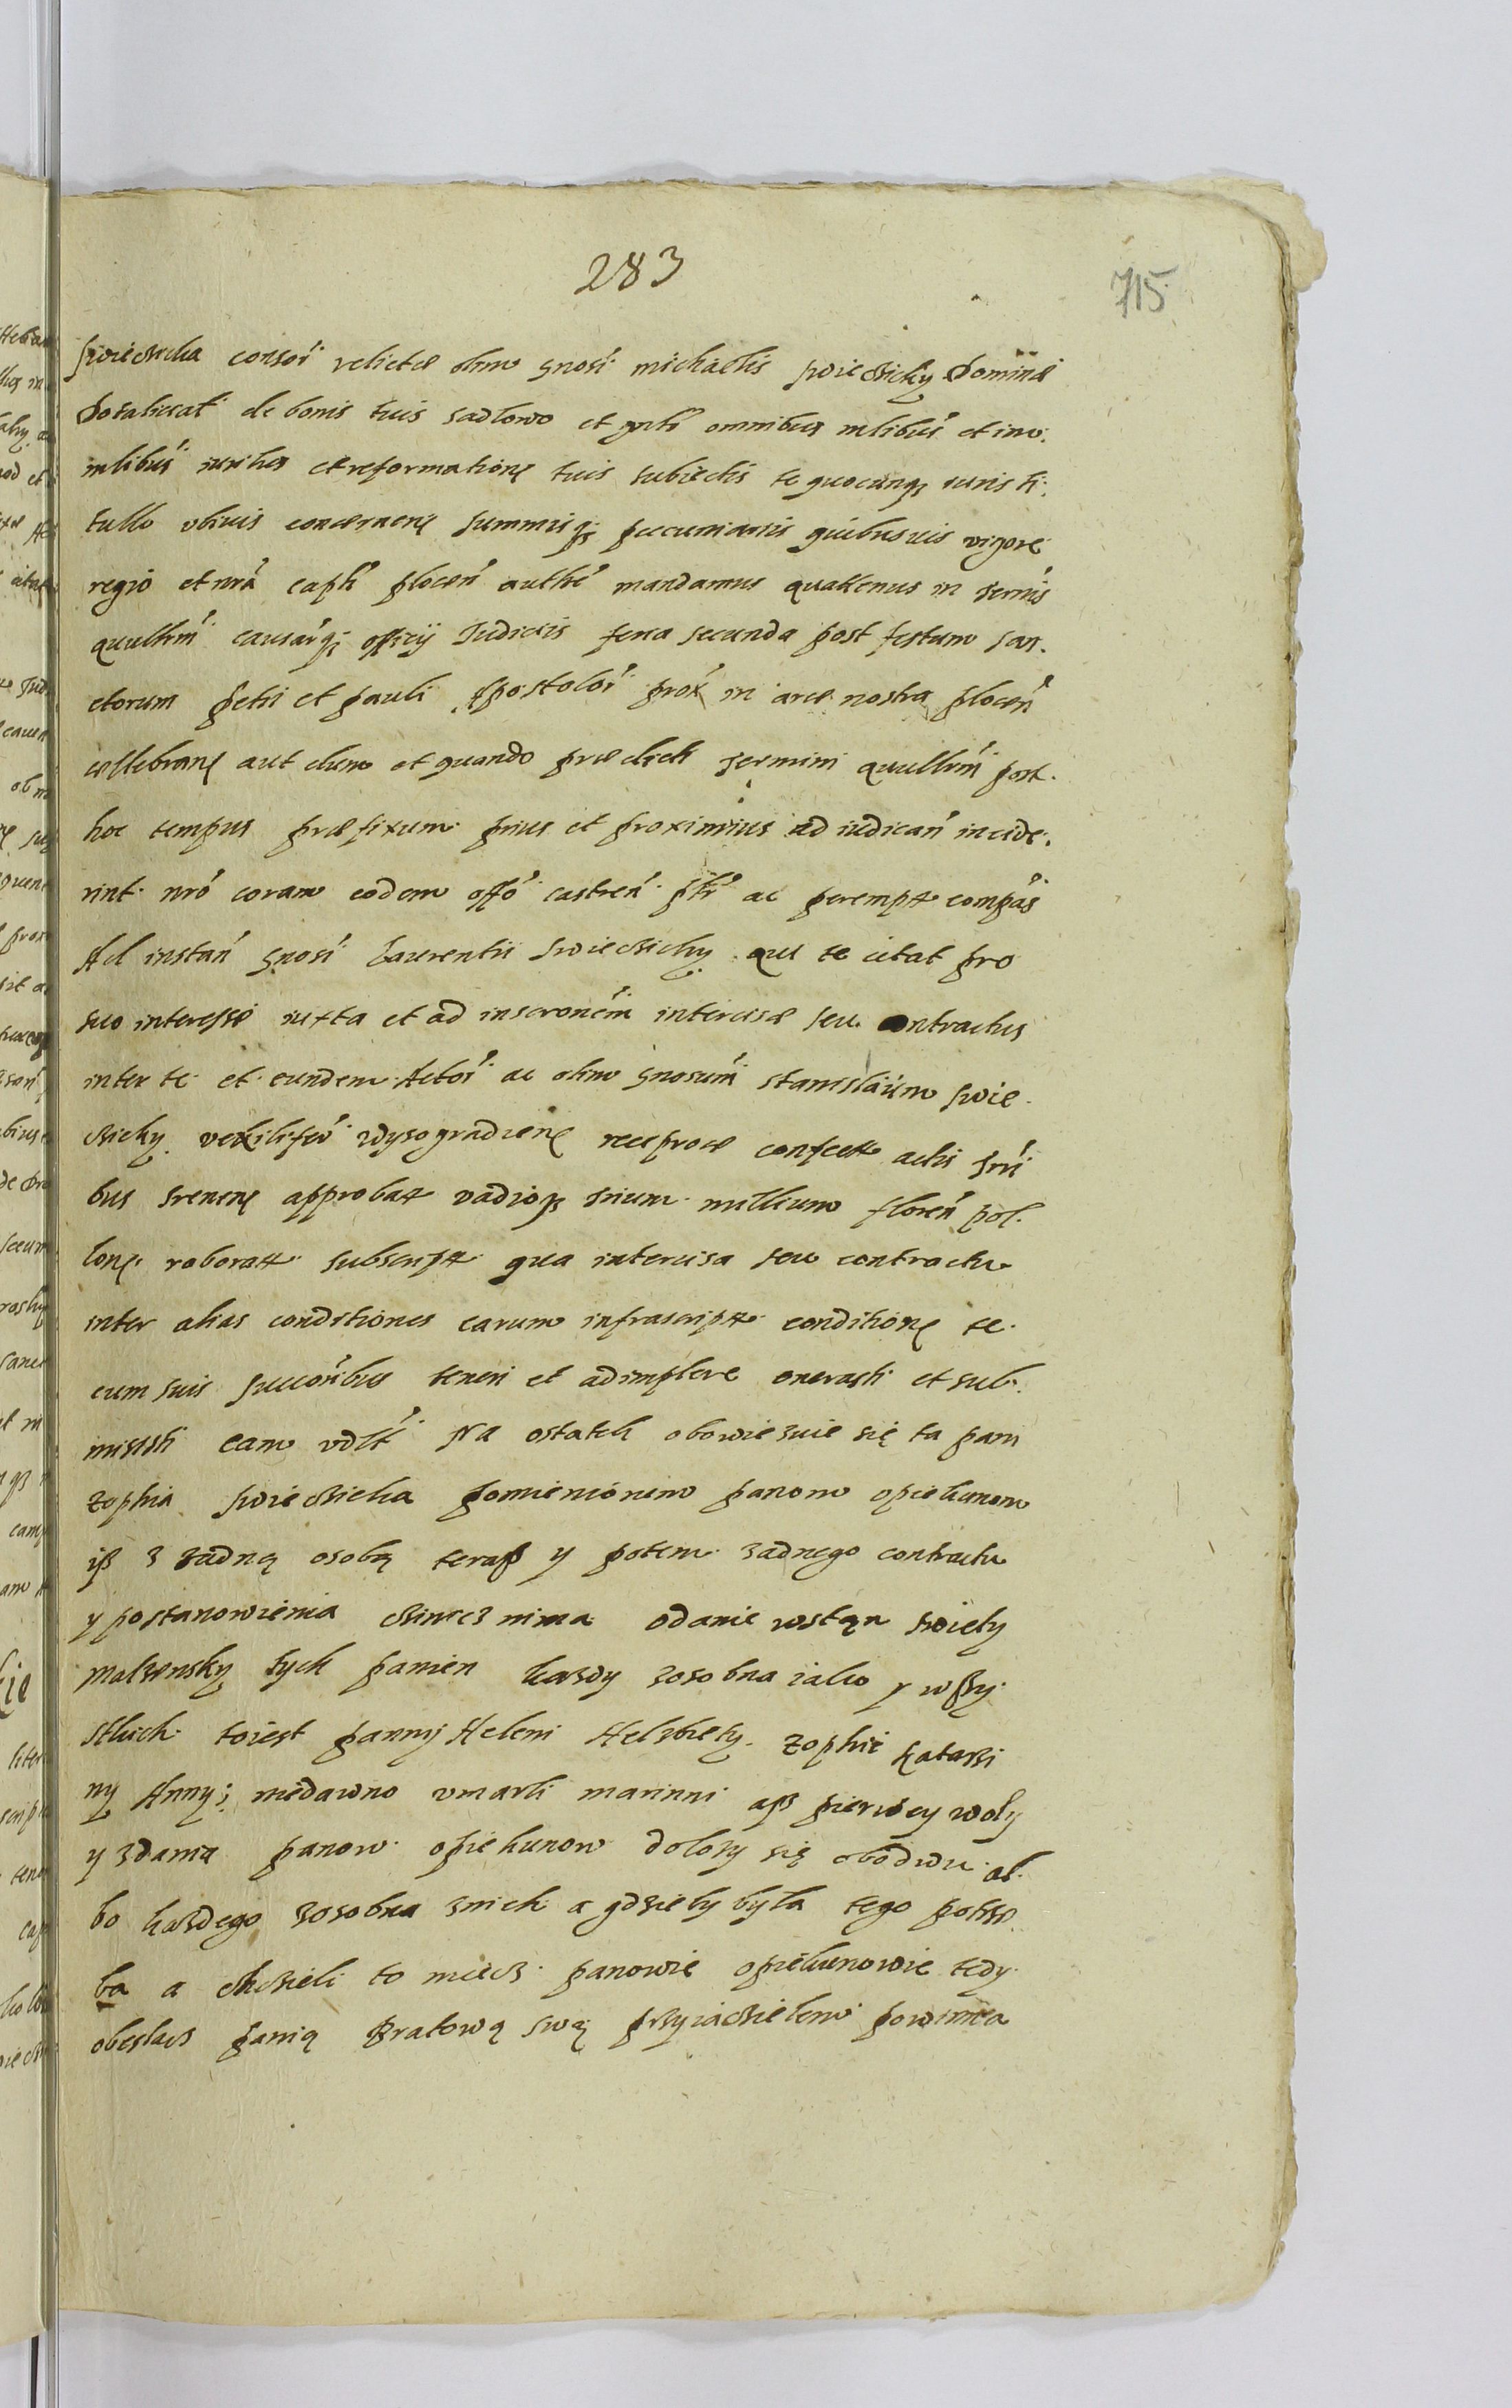 283
715
Swieczicka consor relictæ olim gnosi michaelis swieczicky Dominæ
Dotalicial de bonis tuis sadlowo et gnli omnibus mlibus et imo.
mlibus iuribus et reformatione tuis subiectis te quocunq iuris ti.
tullo ubiuis concernen summisq pecuniariis quibusuis vigore
regio et nrã capli plocen authe mandamus quattenus in termis
quullrm causarq officij Iudiciis feria secunda post festum san.
ctorum petri et pauli Apostolor prox in arce nostra plocen
cellebran aut dum et quando prædicti termini quullrm post.
hoc tempus præfixum prius et proximius ad iudican incide.
rint nro coram eodem offo castren pltr ac perempt compas
Ad instan gnosi Laurentii swieczicky qui te citat pro
suo interesse iuxta et ad inscronem intercisæ seu contractus
inter te et eundem Actor ac olim gnosum stanislaum swie.
czicky vexilifer wysogradien reciproce confect actis trri
bus srenen approbat vadioq trium millium floren pol.
lon roborat subscript qua intercisa seu contractu
inter alias conditiones earum infrascript condition te
cum suis succoribus teneri et adimplere onerasti et sub.
misisti eam vdlt Na ostatek obowiezuie się ta pani
zophia swieczicka pomienionem panom opiekunom
iß z zadną osobą teraß y potem zadnego contractu
y postanowienia czinicz nima odanie wstąn swiety
malzensky tych panien kazdy zosobna iako y wßy
stkich toiest panny Heleni Helzbiety zophie katarzi
ny Anny; niedawno vmarli marinni aß pierwey woly
y zdania panow opiekunow dolozy się obudwu al.
bo kazdego zosobna znich a gdzieby byla tego potrze
ba a chczieli to miecz panowie opiekunowie tedy
obeslacz panią Bratową swą przyiaczielem powinna